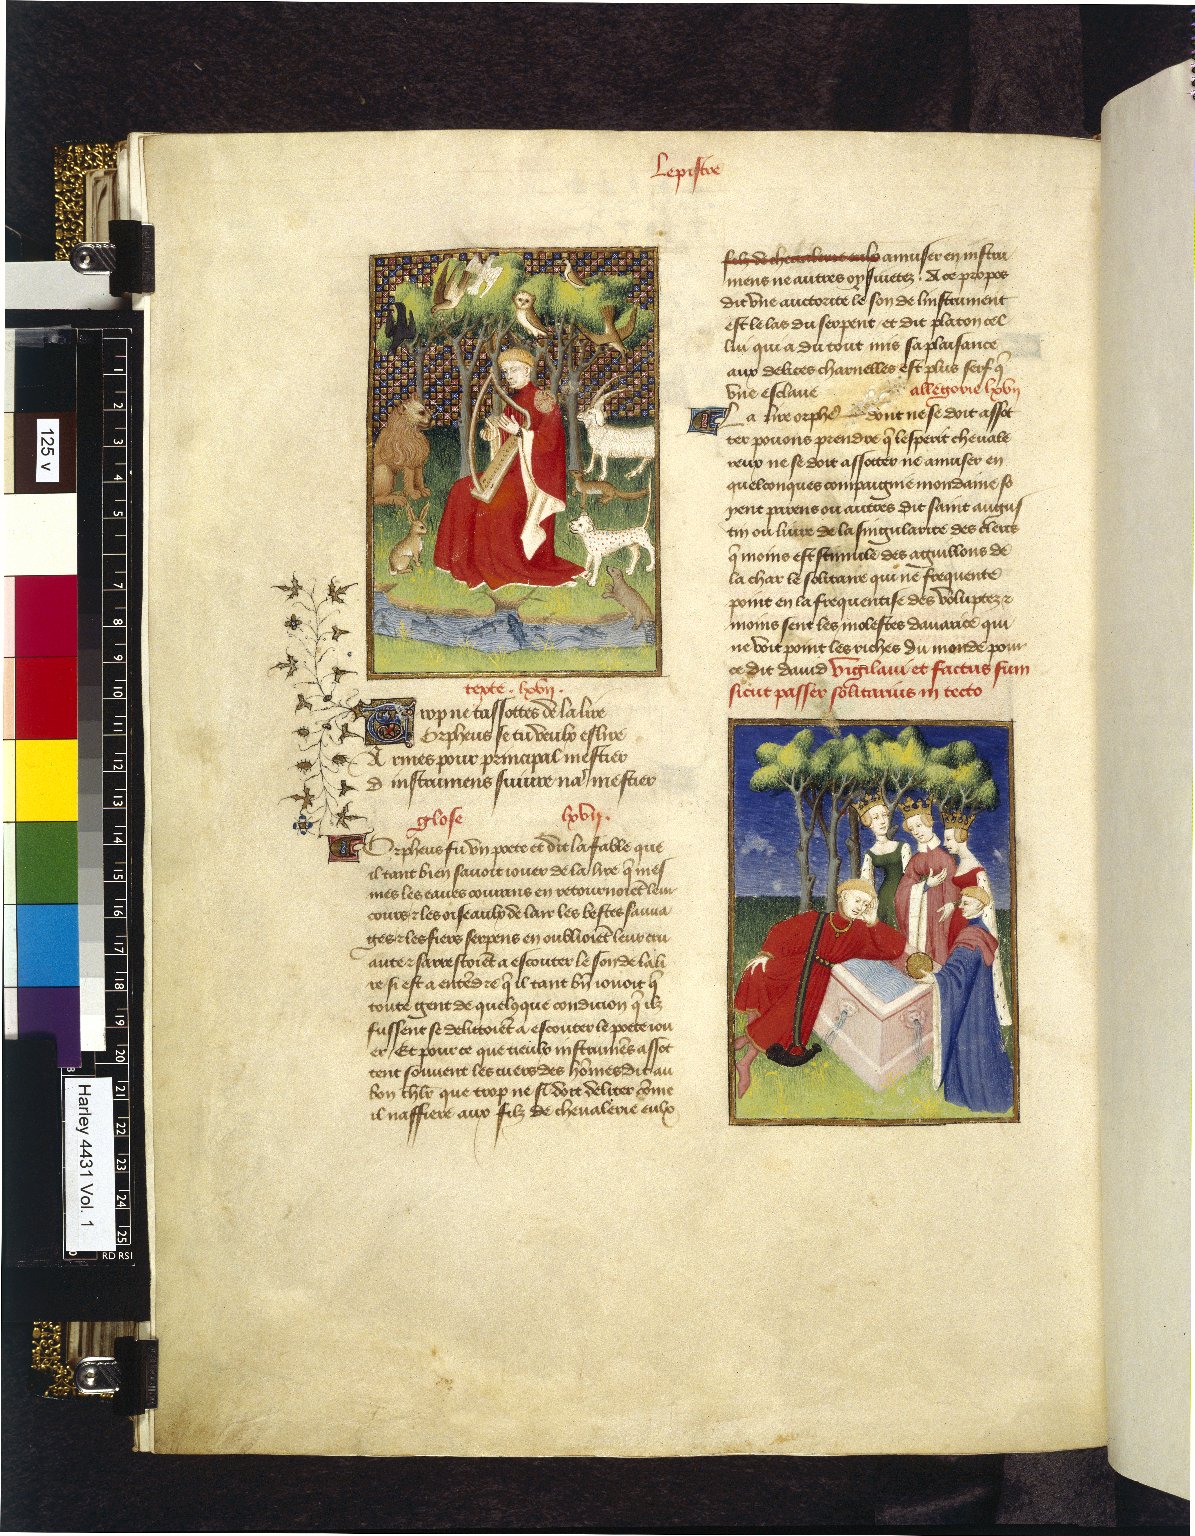 Lepistre
texte . lxvii .
Trop ne tassottes de la lire
Orpheus se tu veulx eslire
Armes pour principal mestier
d instrumens suiuire nas mestier
glose lxvii .
Orpheus fu vn poete et dit la fable que
il tant bien sauoit iouer de la lire q̄ mes
mes les eaues courans en retournoiēt leur
cours ⁊ les oiseaulx de lair les bestes sauua
ges ⁊ les fiers serpens en oublioiēt leur cru
aute ⁊ sarrestoiēt a escouter le son de la li
re si est a entēdre q̄ il tant bn̄ iouoit q̄
toute gent de quelq̄que condicion q̄ ilz
fussent se delittoiēt a escouter le poete iou
er / Et pour ce que tieulx instrumēs assot
tent souuent les cuers des hōmes dit au
bon chlr̄ que trop ne si doit deliter cōme
il naffiere aux filz de cheualerie eulx
filz de cheualerie eulx amuser en instru
mens ne autres oysiuetez . A ce propos
dit vne auctorite le son de linstrument
est le las du serpent / et dit platon cel
lui qui a du tout mis sa plaisance
aux delices charnelles est plus serf q̄
vne esclaue allegorie lxvii
La lire orphe dont ne se doit assot
ter pouons prendre q̄ lesperit cheuale
reux ne se doit assotter ne amuser en
quelconques compaignie mondaine so
yent parens ou autres dit saint augus
tin ou liure de la singularite des clercs
q̄ moins est stimule des aguillons de
la char le solitaire qui nē frequente
point en la frequentise des voluptez ⁊
moins sent les molestes dauarice qui
ne voit point les riches du monde pour
ce dit dauid Vigilaui et factus sum
sicut passer solitarius in tecto
125 v
Harley 4431 Vol. 1
1
2
3
4
5
7
8
9
10
11
12
13
14
15
16
17
18
19
20
21
22
23
24
25
RD RSI